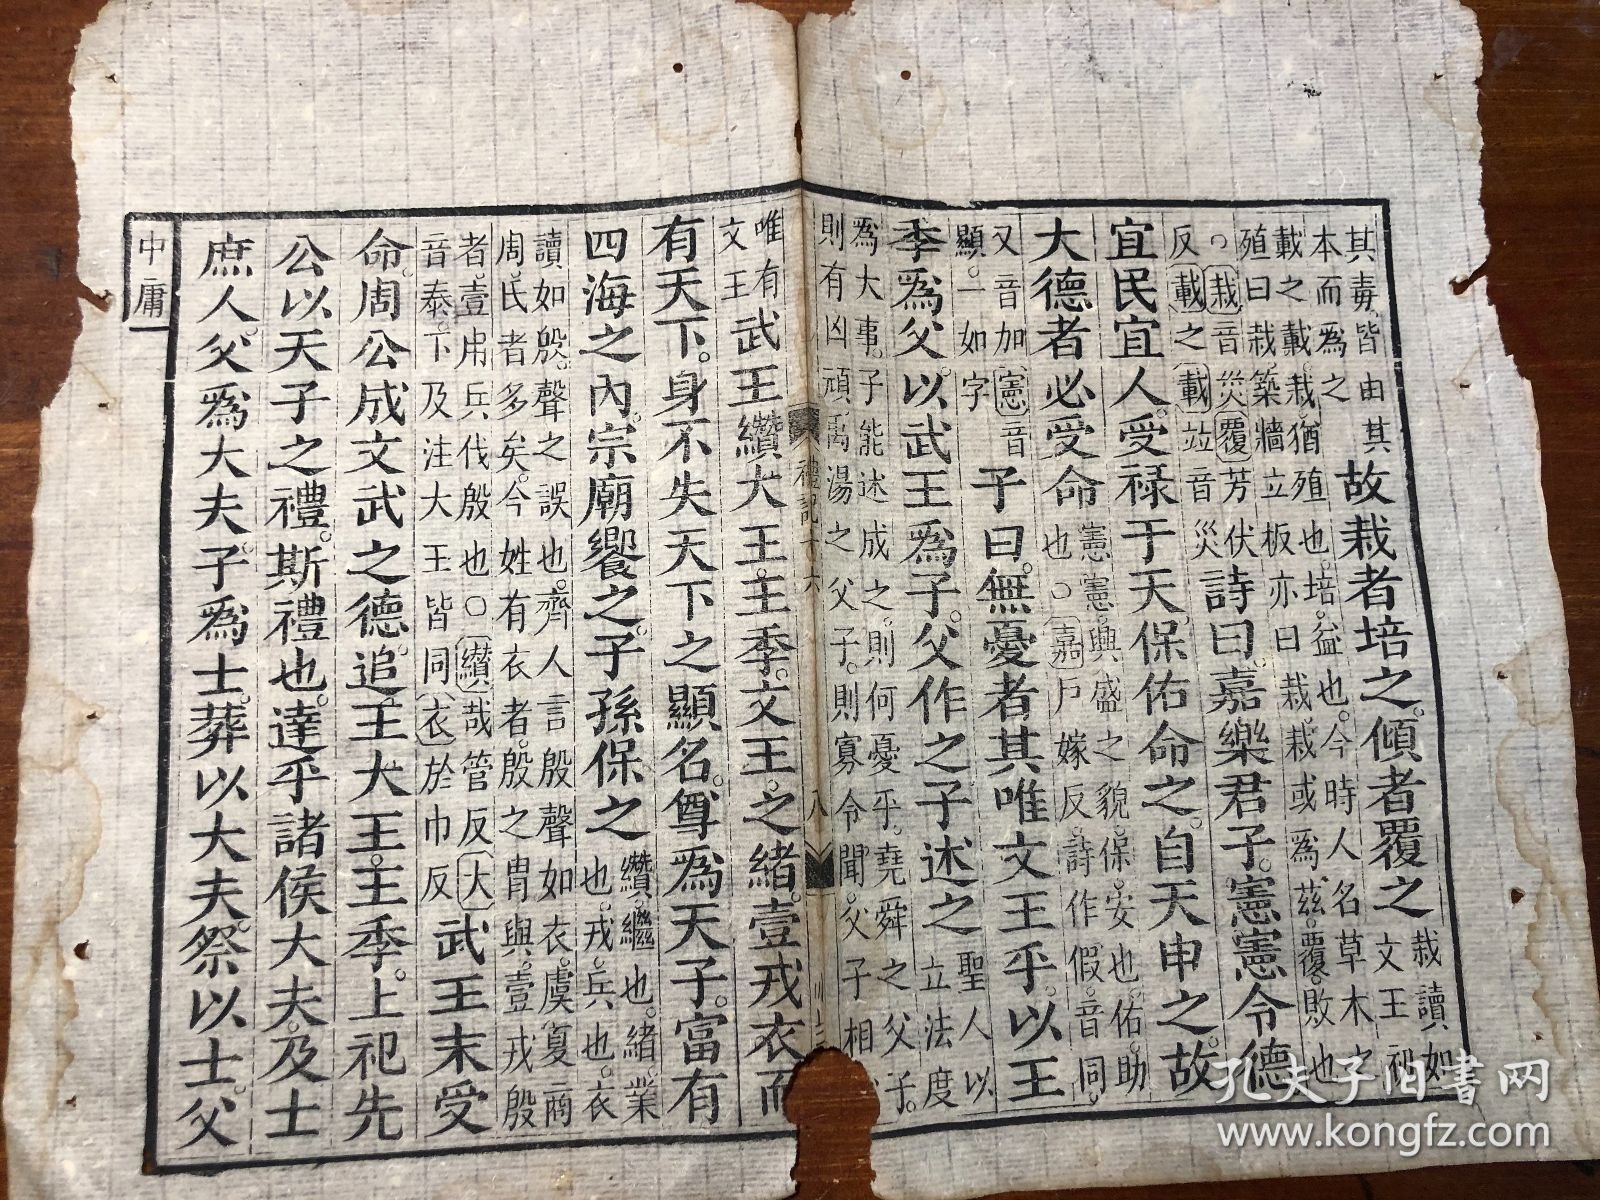 其毒皆由其
本而爲之
故栽者培之。傾者覆之
栽讀如
文王初
載之載栽猶殖也。培。益也。今時人名草木之
殖曰栽。築牆立板亦曰栽。栽或爲茲。覆。敗也
○栽音災覆芳伏
反載之載竝音災
詩曰。嘉樂君子。憲憲令德
宜民宜人。受禄于天。保佑命之。自天申之。故
大德者必受命
憲憲。興盛之貌。保。安也。佑。助
也○嘉戶嫁反。詩作假。音同。
又音加憲音
顯。一如字
子曰。無憂者其唯文王乎。以王
季爲父。以武王爲子。父作之。子述之
聖人以
立法度
爲大事。子能述成之。則何憂乎。堯舜之父子。
則有凶頑。禹湯之父子。則寡令聞。父子相
禮記十六
八
唯有
文王
武王纘大王。王季。文王。之緒。壹戎衣而
有天下。身不失天下之顯名。尊爲天子。富有
四海之內。宗廟饗之。子孫保之
纘。繼也。緒。業
也。戎。兵也。衣
讀如殷。聲之誤也。齊人言殷聲如衣。虞夏商
周。氏者多矣。今姓有衣者。殷之胄與。壹戎殷
者。壹用兵伐殷也○纘哉管反大
音泰。下及注大王皆同衣於巾反
武王末受
命。周公成文武之德。追王大王。王季。上祀先
公以天子之禮。斯禮也。達乎諸侯大夫。及士
庶人。父爲大夫。子爲士。葬以大夫。祭以士。父
中庸
孔夫子旧書网
www.kongfz.com